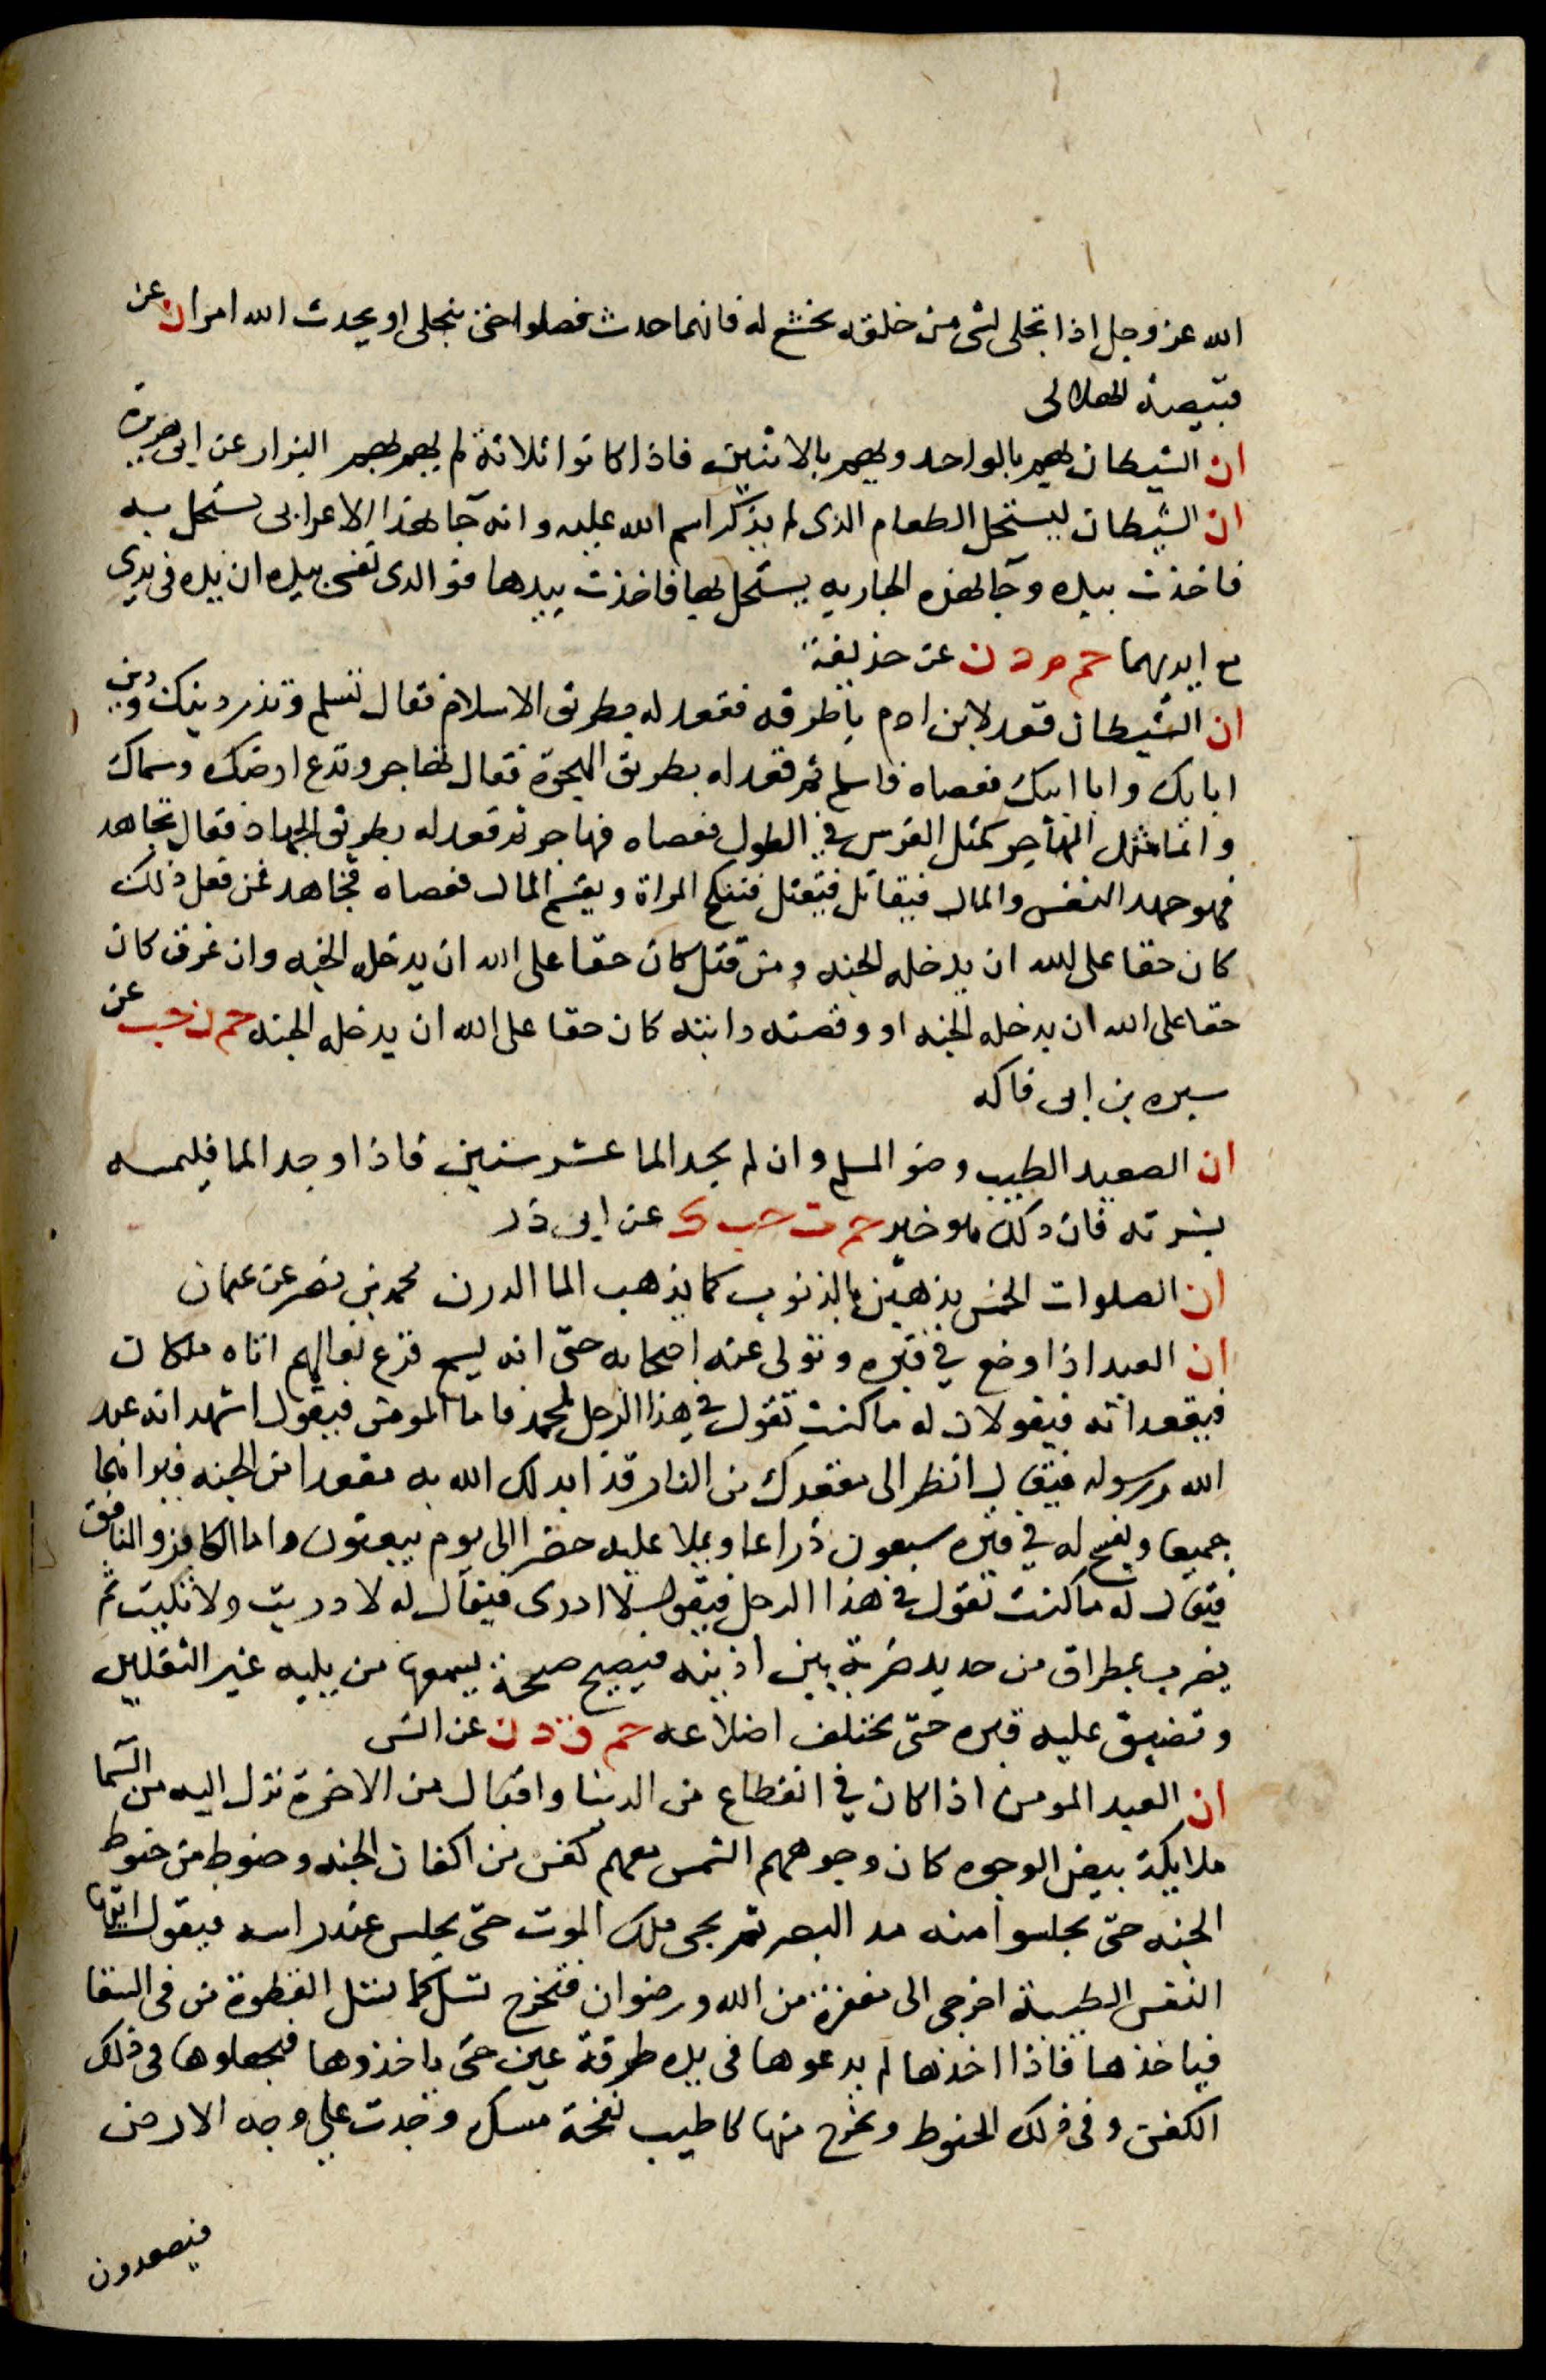 الله عز وجل اذا تجلى لشى من خلقه يخشع له فايهما حدث فصلوا حتى ينجلى او يحدث الله امرا ن عن
قبيصة الهلالى
ان الشيطان يهم بالواحد ويهم بالاثنين فاذا كانوا ثلاثة لم يهم بهم البزار عن ابى هريرة
ان الشيطان ليستحل الطعام الذى لم يذكر اسم الله عليه وانه جآ بهذا الاعرابى يستحل به
فاخذت بيده وجآ بهذه الجاريه يستحل بها فاخذت بيدها فو الذى نفسى بيده ان يده فى يدى
مع ايديهما حم م د ن عن حذيفة
ان الشيطان قعد لابن ادم باطرقه فقعد له بطريق الاسلام فقال تسلم وتذر دينك ودين
ابايك وابا ابيك فعصاه فاسلم ثم قعد له بطريق الهجرة فقال تهاجر وتدع ارضك وسماك
وانما مثل المهاجر كمثل الفرس في الطول فعصاه فهاجر ثم قعد له بطريق الجهاد فقال تجاهد
فهو جهد النفس والمال فيقاتل فيقتل فتنكح المراة ويقسم المال فعصاه فجاهد فمن فعل ذلك
كان حقا على الله ان يدخله الجنه ومن قتل كان حقا على الله ان يدخله الجنه وان غرق كان
حقا على الله ان يدخله الجنه او وقصته دابته كان حقا على الله ان يدخله الجنه حم ن حب عن
سبره بن ابى فاكه
ان الصعيد الطيب وضو المسلم وان لم يجد الما عشر سنين فاذا وجد الما فليمسه
بشرته فان ذلك هو خير حم ت حب ك عن ابى ذر
ان الصلوات الخمس يذهبن بالذنوب كما يذهب الما الدرن محمد بن نصر عن عثمان
ان العبد اذا وضع في قبره وتولى عنه اصحابه حتى انه ليسمع قرع نعالهم اتاه ملكان
فيقعدانه فيقولان له ما كنت تقول في هذا الرجل لمحمد فاما المومن فيقول اشهد انه عبد
الله ورسوله فيقال انظر الى مقعدك من النار قد ابدلك الله به مقعدا من الجنه فيراهما
جميعا ويفسح له في قبره سبعون ذراعا ويملا عليه خضرا الى يوم يبعثون واما الكافر والمنافق
فيقال له ما كنت تقول في هذا الرجل فيقول لا ادرى فيقال له لا دريت ولا تليت ثم
يضرب بمطراق من حديد ضربة بين اذنيه فيصيح صيحة يسمعها من يليه غير الثقلين
وتضيق عليه قبره حتى تختلف اضلاعه حم ق د ن عن انس
ان العبد المومن اذا كان في انقطاع من الدنيا واقبال من الاخرة نزل اليه من السما
ملايكة بيض الوجوه كان وجوههم الشمس معهم كفن من اكفان الجنه وحنوط من حنوط
الجنه حتى يجلسوا منه مد البصر ثم يجى ملك الموت حتى يجلس عند راسه فيقول ايتها
النفس الطيبة اخرجى الى مغفرة من الله ورضوان فتخرج تسيل كما تسيل القطرة من فى السقا
فياخذها فاذا اخذها لم يدعوها فى يده طرفة عين حتى ياخذوها فيجعلوها فى ذلك
الكفن وفى ذلك الحنوط ويخرج منها كاطيب نفحة مسك وجدت على وجه الارض
فيصعدون